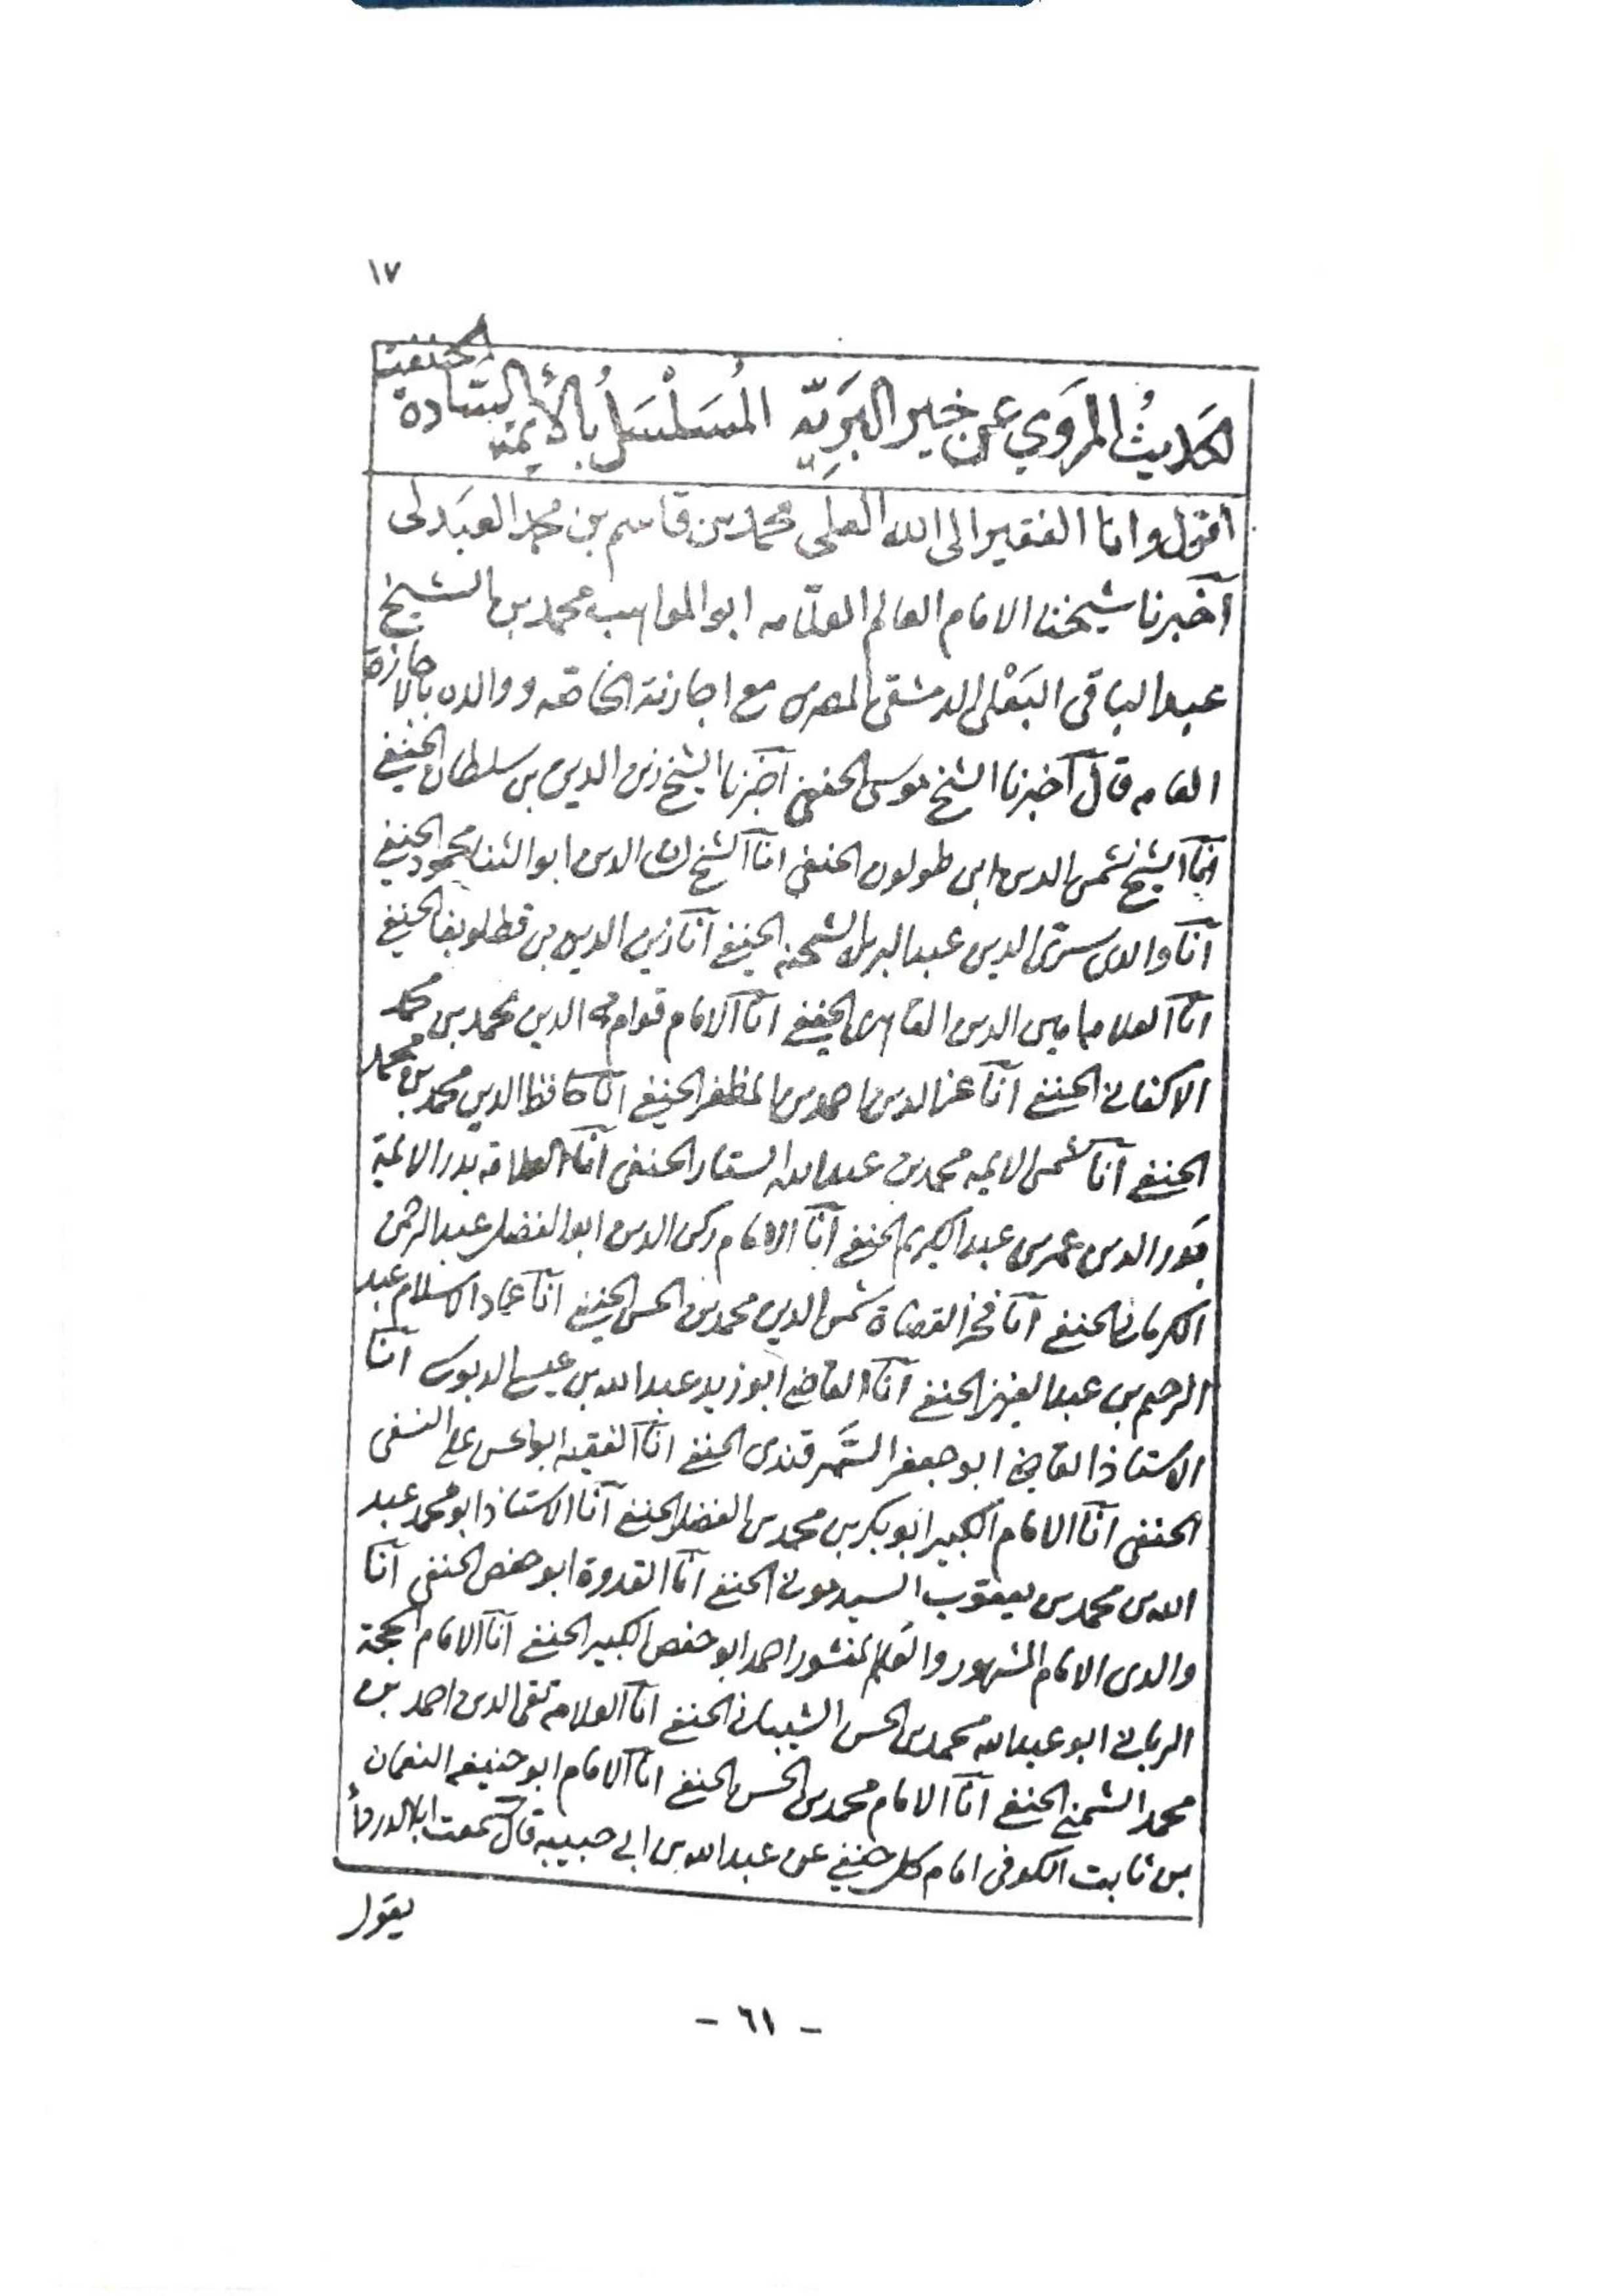 ١٧
الحديثُ المَروَي عن خير البَرِيّه المُسَلْسَلُ بالأئمة السَّادة الحنفية
اقول وانا الفقير الى الله العلى محمد بن قاسم بن محمد العبَدلى
آخبرنا شيخنا الامام العالم العلامه ابو المواهب محمد بن الشيخ
عبد الباقى البَعْلى الدمشقى المصرى مع اجازته الخاصه ووالده بالاجازة
العامه قال آخبرنا الشيخ موسى الحنفى آخبرنا الشيخ زين الدين بن سلطان الحنفي
انآ الشيخ شمس الدين ابن طولون الحنفى انآ الشيخ الدين ابو الثنا محمود الحنفي
آنآ والدى سرىّ الدين عبد البر بن الشحنه الحنفي آنآ زين الدين بن قطلوبغا الحنفي
انآ العلامه امين الدين الحنفي انآ الامام قوام الدين محمد بن محمد
الاكفانى الحنفي انآ عز الدين احمد بن المظفر الحنفي انآ حافظ الدين محمد بن محمد
الحنفي آنآ شمس الايمه محمد بن عبد الستار الحنفى آنآ العلامه بدر الائمة
نور الدين عمر بن عبد الكريم الحنفي آنآ الامام ركن الدين ابو الفضل عبد الرحمن
الكرمانى الحنفي آنآ فخر القضاة شمس الدين محمد بن الحسن الحنفي انآ عماد الاسلام عبد
الرحيم بن عبد العزيز الحنفي آنآ القاضي ابو زيد عبد الله بن عيسى الدبوسى آنآ
الاستاذ القاضي ابو جعفر السَّمرقندى الحنفي انآ الفقيه ابو الحسن على النسفى
الحنفى انآ الامام الكبير ابو بكر بن محمد بن الفضل الحنفي آنآ الاستاذ ابو محمد عبد
الله بن محمد بن يعقوب السيدمونى الحنفي انآ القدوة ابو حفص الحنفى آنآ
والدى الامام المشهور والعَلَم المنشور احمد ابو حفص الكبير الحنفي آنآ الامام الحجة
الربانى ابو عبد الله محمد بن الحسن الشيبانى الحنفي انآ العلامه تقى الدين احمد بن
محمد الشمنى الحنفي آنآ الامام محمد بن الحسن الحنفي انآ الامام ابو حنيفه النعمان
بن ثابت الكوفى امام كل حنفي عن عبد الله بن ابي حبيبه قال سمعت ابا الدرداء
يقول
- ٦١ -